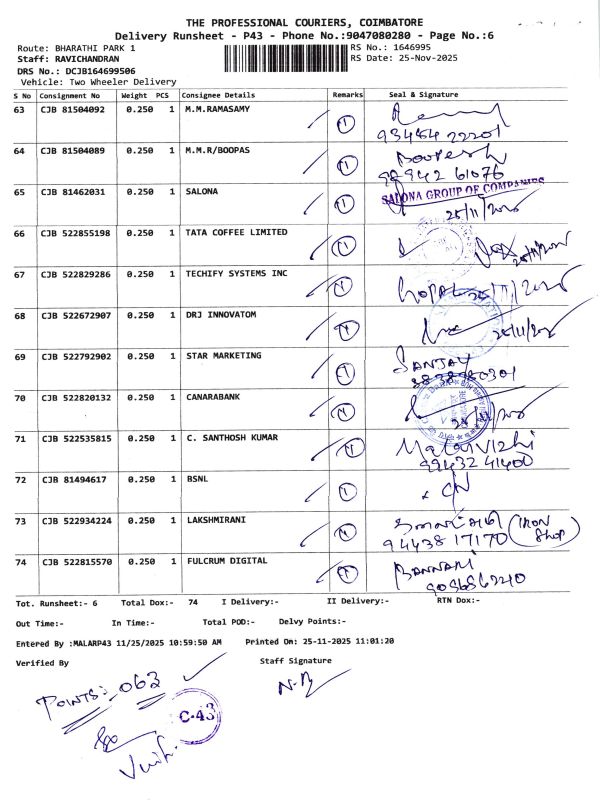 THE PROFESSIONAL COURIERS, COIMBATORE
Delivery Runsheet - P43 - Phone No.:9047080280 - Page No.:6
Route: BHARATHI PARK 1 RS No.: 1646995
Staff: RAVICHANDRAN RS Date: 25-Nov-2025
DRS No.: DCJB164699506
Vehicle: Two Wheeler Delivery
S No Consignment No Weight PCS Consignee Details Remarks Seal & Signature
63 CJB 81504092 0.250 1 M.M.RAMASAMY
64 CJB 81504089 0.250 1 M.M.R/BOOPAS
98942 61076
65 CJB 81462031 0.250 1 SALONA SALONA GROUP OF COMPANIES
25/11/2025
66 CJB 522855198 0.250 1 TATA COFFEE LIMITED
67 CJB 522829286 0.250 1 TECHIFY SYSTEMS INC GOPAL
68 CJB 522672907 0.250 1 DRJ INNOVATOM
69 CJB 522792902 0.250 1 STAR MARKETING SANJAY
70 CJB 522820132 0.250 1 CANARABANK
71 CJB 522535815 0.250 1 C. SANTHOSH KUMAR Malarvizhi
99432 41400
72 CJB 81494617 0.250 1 BSNL
73 CJB 522934224 0.250 1 LAKSHMIRANI (IRON Shop)
94438 17170
74 CJB 522815570 0.250 1 FULCRUM DIGITAL BANNARI
Tot. Runsheet:- 6 Total Dox:- 74 I Delivery:- II Delivery:- RTN Dox:-
Out Time:- In Time:- Total POD:- Delvy Points:-
Entered By :MALARP43 11/25/2025 10:59:50 AM Printed On: 25-11-2025 11:01:20
Verified By Staff Signature
POINTS:- 063
C-43